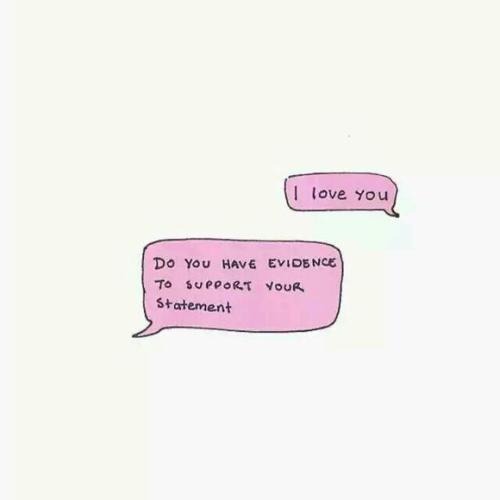 I love you
DO YOU HAVE EVIDENCE
TO SUPPORT YOUR
Statement